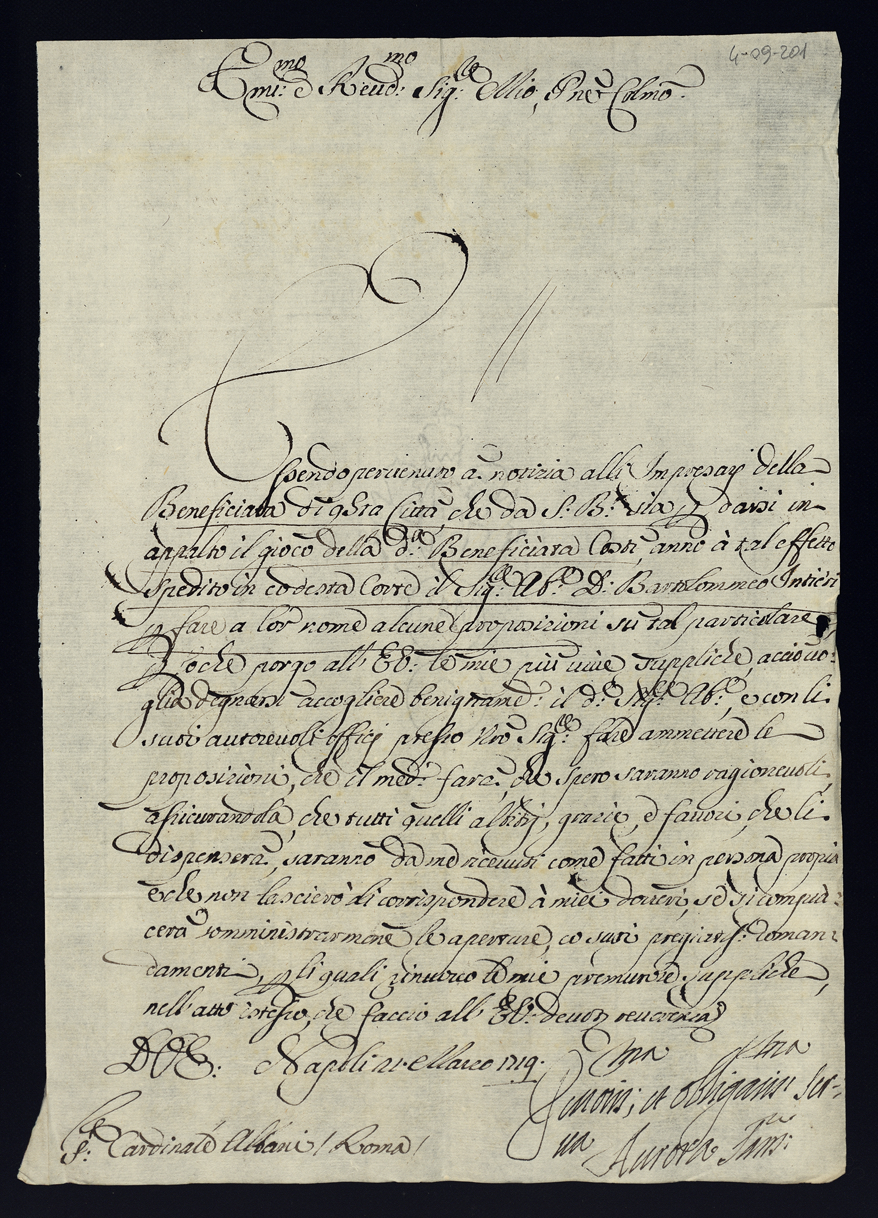 4-09-201
Em.mo e Reud.mo Sig.re Mio, Pne Colmo.
Essendo peruenuto a notizia alli Impresarj della
Beneficiata di qsta Città, che da S. B. sia p darsi in
appalto il gioco della d.a Beneficiata Costì, anno à tal effetto
spedito in codesta Corte il Sig.re Ab.e D: Bartolommeo Intieri
p fare a lor nome alcune proposizioni su tal particolare,
p loche porgo all' E V: le mie più viue suppliche, acciò uo:
glia degnarsi accogliere benigname: il d.o Sig.re Ab.e, e con li
suoi autoreuoli officj presso Nro Sig.re fare ammettere le
proposizioni, che il med: farà, che spero saranno ragioneuoli,
assicurandola, che tutti quelli arbitrj, grazie, e fauori, che li
dispenserà, saranno da me riceuuti come fatti in persona propria
e che non lascierò di corrispondere à miei doueri, se si compia:
cerà somministrarmene le aperture, co suoi pregiatis: Coman:
damenti, p li quali rinuouo le mie premurose suppliche,
nell' atto istesso, che faccio all' E V: deuotᵃ reuerenza
D V E: Napoli 21 Marzo 1719.
Deuotis.ma, et obligatis.ma Ser=
ua
Aurora San:
S.r Cardinale Albani / Roma /